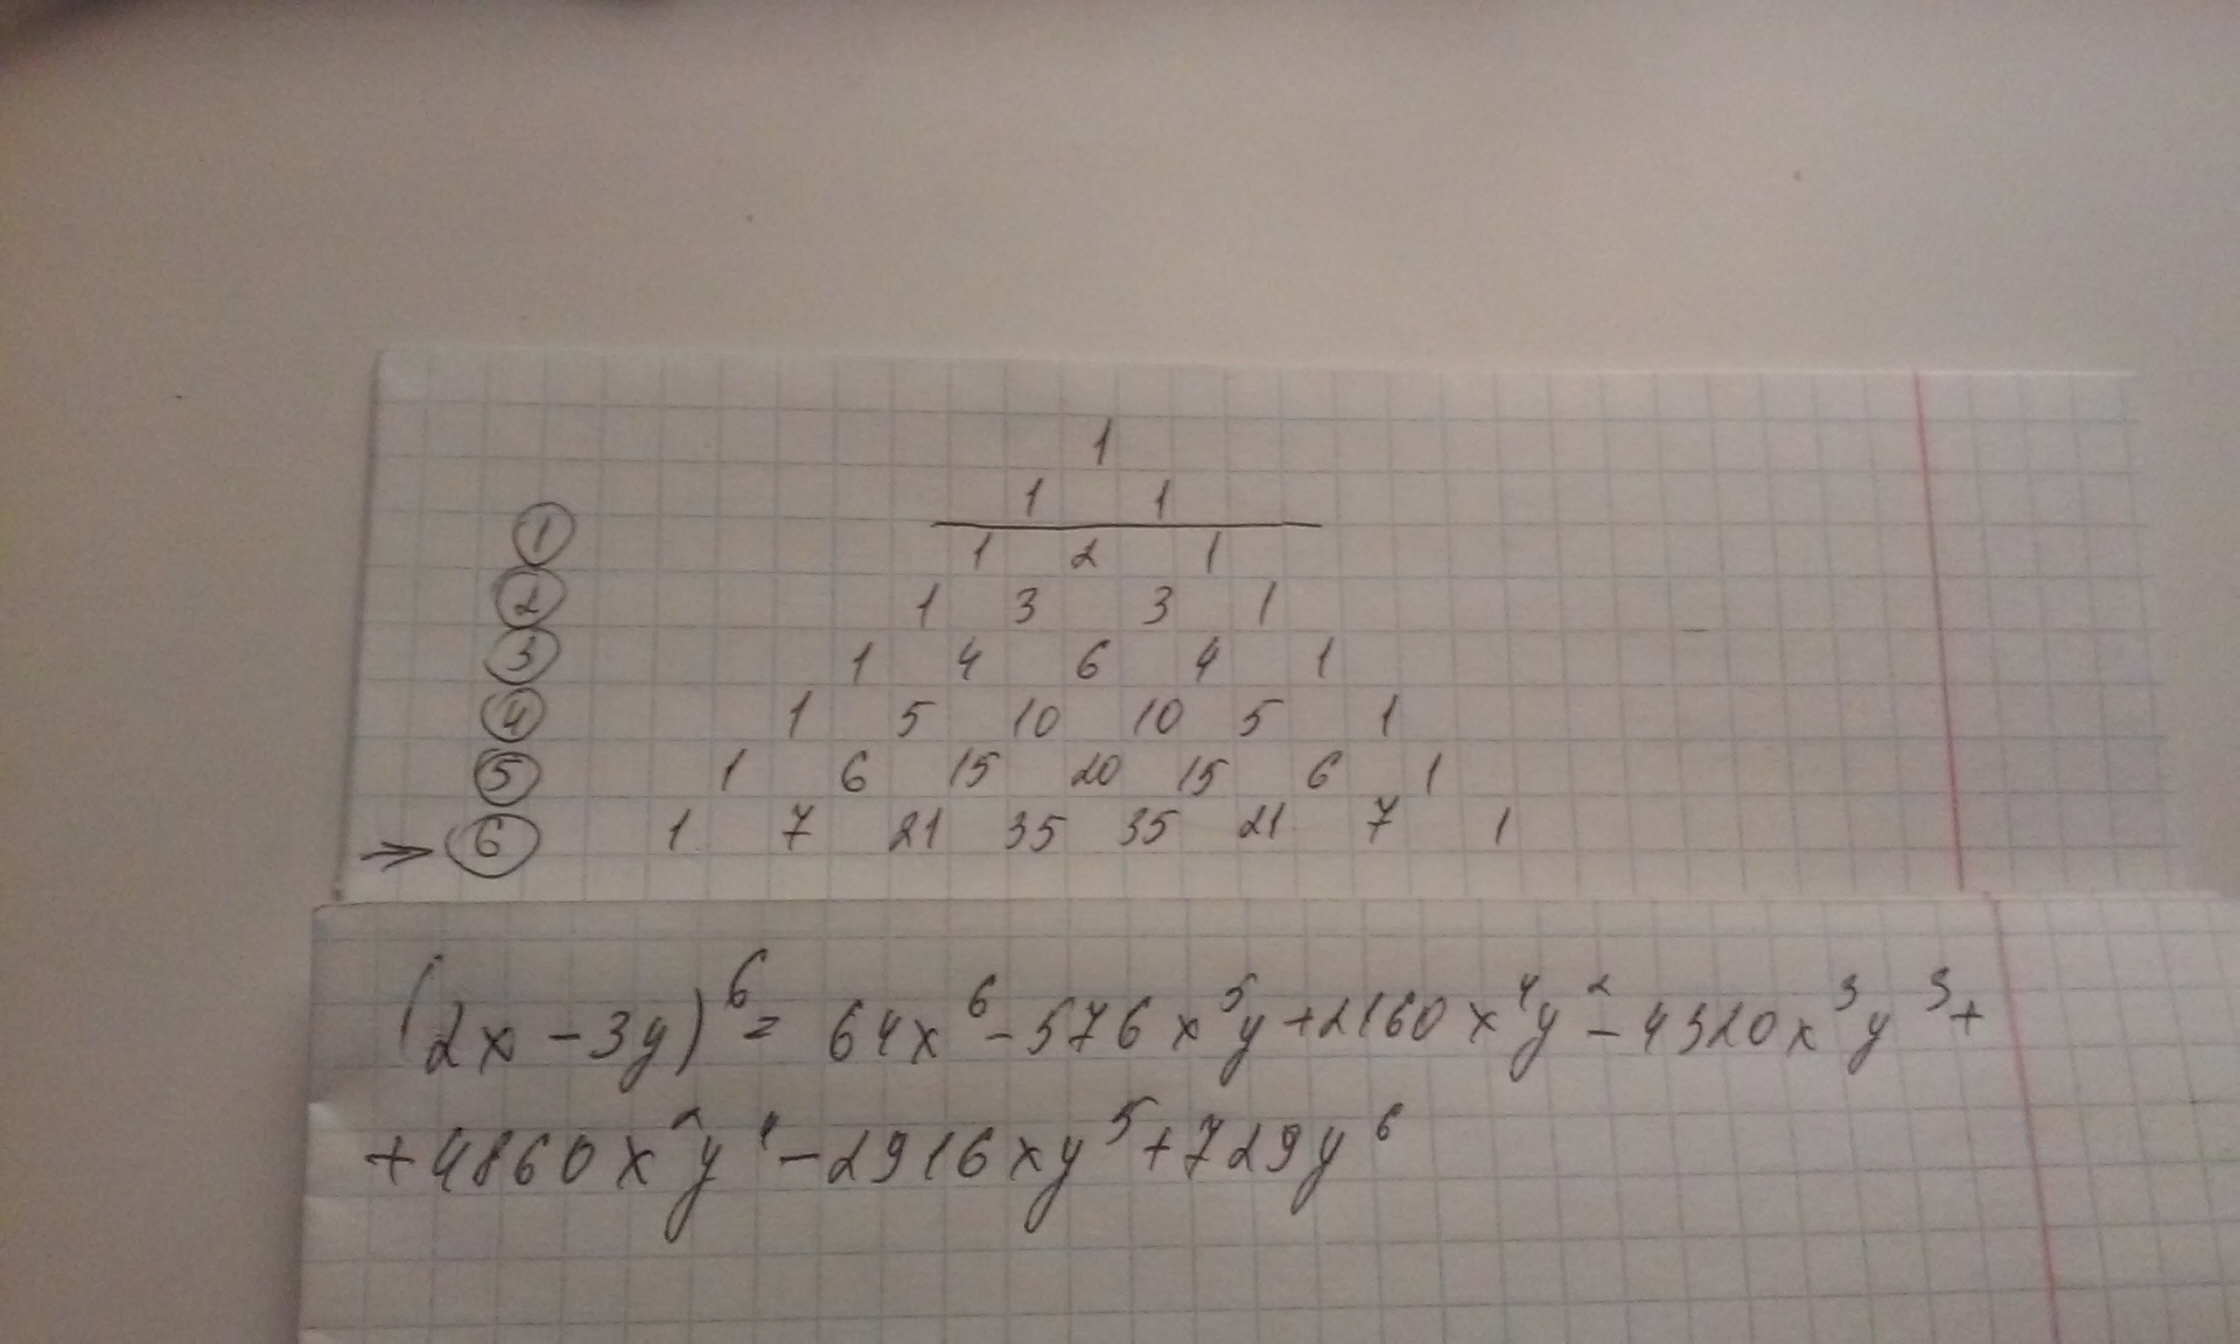 1
1 1
① 1 2 1
② 1 3 3 1
③ 1 4 6 4 1
④ 1 5 10 10 5 1
⑤ 1 6 15 20 15 6 1
→ ⑥ 1 7 21 35 35 21 7 1
(2x - 3y)⁶ = 64x⁶ - 576x⁵y + 2160x⁴y² - 4320x³y³ +
+ 4860x²y⁴ - 2916xy⁵ + 729y⁶